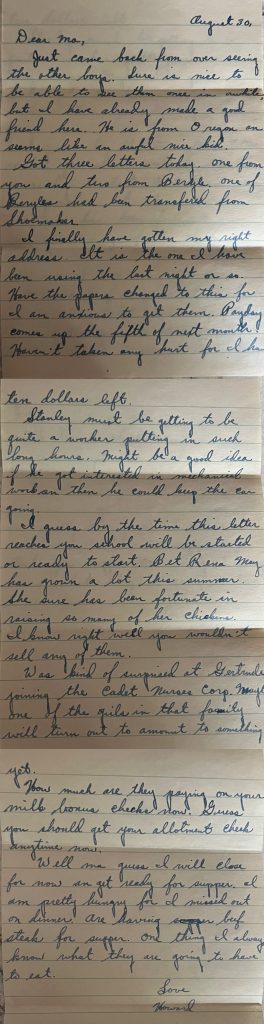 August 30,
Dear Ma,
Just came back from over seeing
the other boys. Sure is nice to
be able to see them once in awhile,
but I have already made a good
friend here. He is from Oregon an
seems like an awful nice kid.
Got three letters today. one from
you and two from Beryle. one of
Beryles had been transfered from
Shoemaker.
I finally have gotten my right
address. It is the one I have
been using the last night or so.
Have the papers changed to this for
I am anxious to get them. Payday
comes up the fifth of next month.
Haven't taken any hurt for I ha
ten dollars left.
Stanley must be getting to be
quite a worker putting in such
long hours. Might be a good idea
if he got interested in mechanical
work an then he could keep the car
going.
I guess by the time this letter
reaches you school will be started
or ready to start. Bet Rena May
has grown a lot this summer.
She sure has been fortunate in
raising so many of her chickens.
I know right well you wouldn't
sell any of them.
Was kind of surprised at Gertrude
joining the Cadet Nurses Corp.
one of the girls in that family
will turn out to amount to something
yet.
How much are they paying on your
milk bonus checks now. Guess
you should get your allotment check
anytime now.
Well ma guess I will close
for now an get ready for supper. I
am pretty hungry for I missed out
on dinner. Are having beef
steak for supper. One thing I always
know what they are going to have
to eat.
Love
Howard